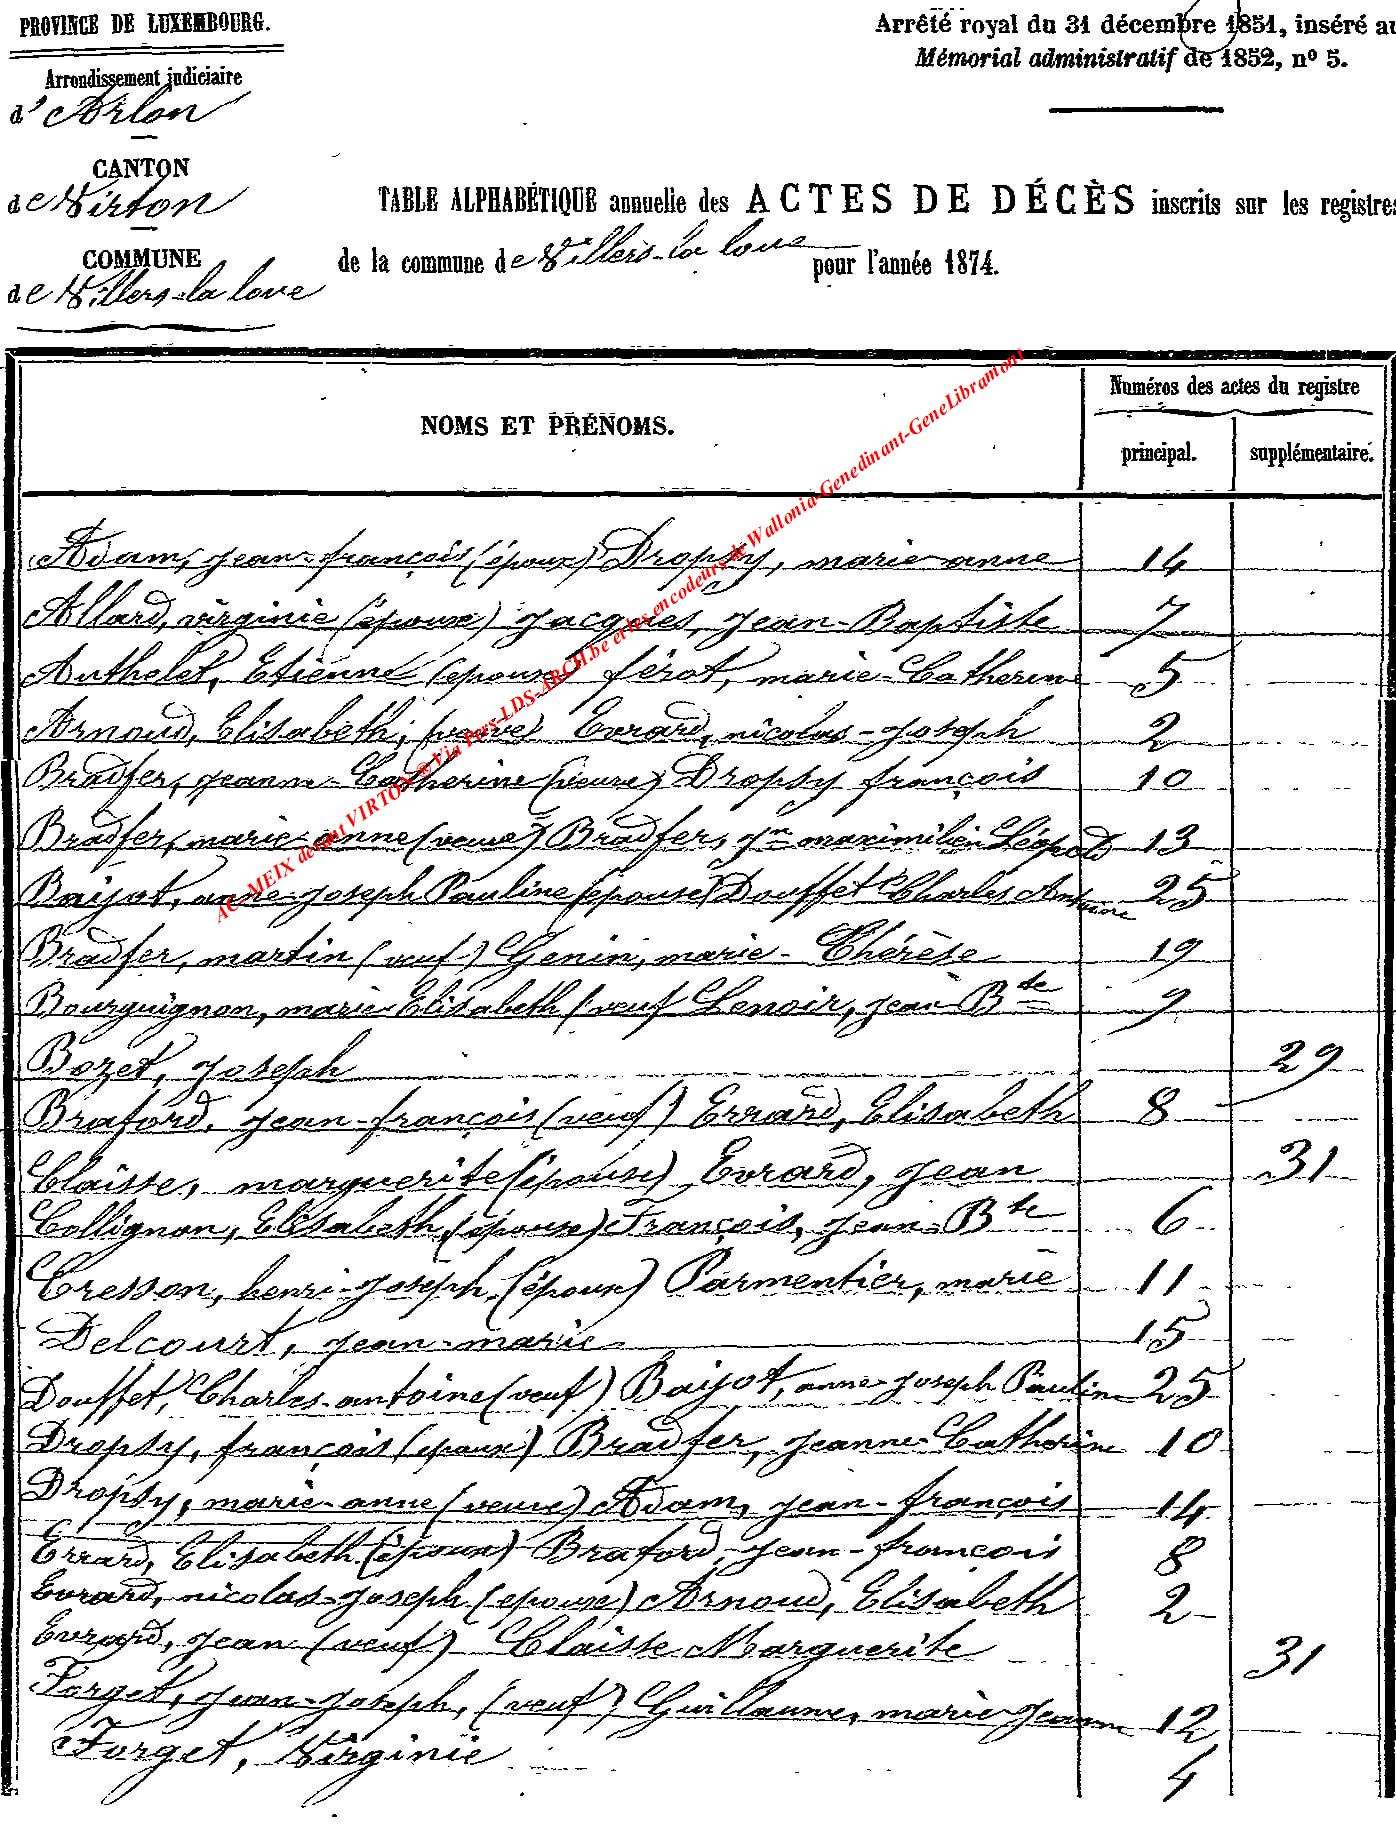 PROVINCE DE LUXEMBOURG.
Arrêté royal du 31 décembre 1851, inséré au
Mémorial administratif de 1852, nº 5.
Arrondissement judiciaire
d'Arlon
CANTON
de Virton
COMMUNE
de Villers-la loue
TABLE ALPHABÉTIQUE annuelle des ACTES DE DÉCÈS inscrits sur les registres
de la commune de Villers-la loue pour l'année 1874.
NOMS ET PRÉNOMS.
Numéros des actes du registre
principal.
supplémentaire.
Adam, jean-françois (époux) Dropsy, marie anne 14
Allard, virginie (épouse) Jacques, Jean-Baptiste 7
Anthelet, Etienne (epouse) férot, marie-Catherine 5
Arnoud, Elisabeth, (veuve) Evrard, nicolas-joseph 2
Bradfer, jeanne-Catherine (veuve) Dropsy françois 10
Bradfer, marie-anne (veuve) Bradfer, Jn maximilien Léopold 13
Baijot, anne-joseph Pauline (épouse) Douffet Charles Antoine 25
Bradfer, martin (veuf) Genin, marie-Thérèse 19
Bourguignon, marie Elisabeth (veuf Lenoir, jean Bte 9
Bozet, joseph 29
Braford, jean-françois (veuf) Errard, Elisabeth 8
Claisse, marguerite (épouse) Evrard, jean 31
Collignon, Elisabeth, (épouse) François, jean-Bte 6
Cresson, henri-joseph, (époux) Parmentier, marie 11
Delcourt, jean-marie 15
Douffet, Charles-antoine (veuf) Baijot, anne-joseph Pauline 25
Dropsy, françois (époux) Bradfer, jeanne-Catherine 10
Dropsy, marie-anne (veuve) Adam, jean-françois 14
Errard, Elisabeth (époux) Braford, jean-françois 8
Evrard, nicolas-joseph (epouse) Arnoud, Elisabeth 2
Evrard, jean (veuf) Claisse Marguerite 31
Forget, jean-joseph, (veuf) Guillaume, marie jeanne 12
Forget, Virginie 4
AC MEIX devant VIRTON @ Via Pers-LDS-ARCH.be et les encodeurs de Wallonia-Genedinant-GeneLibramont